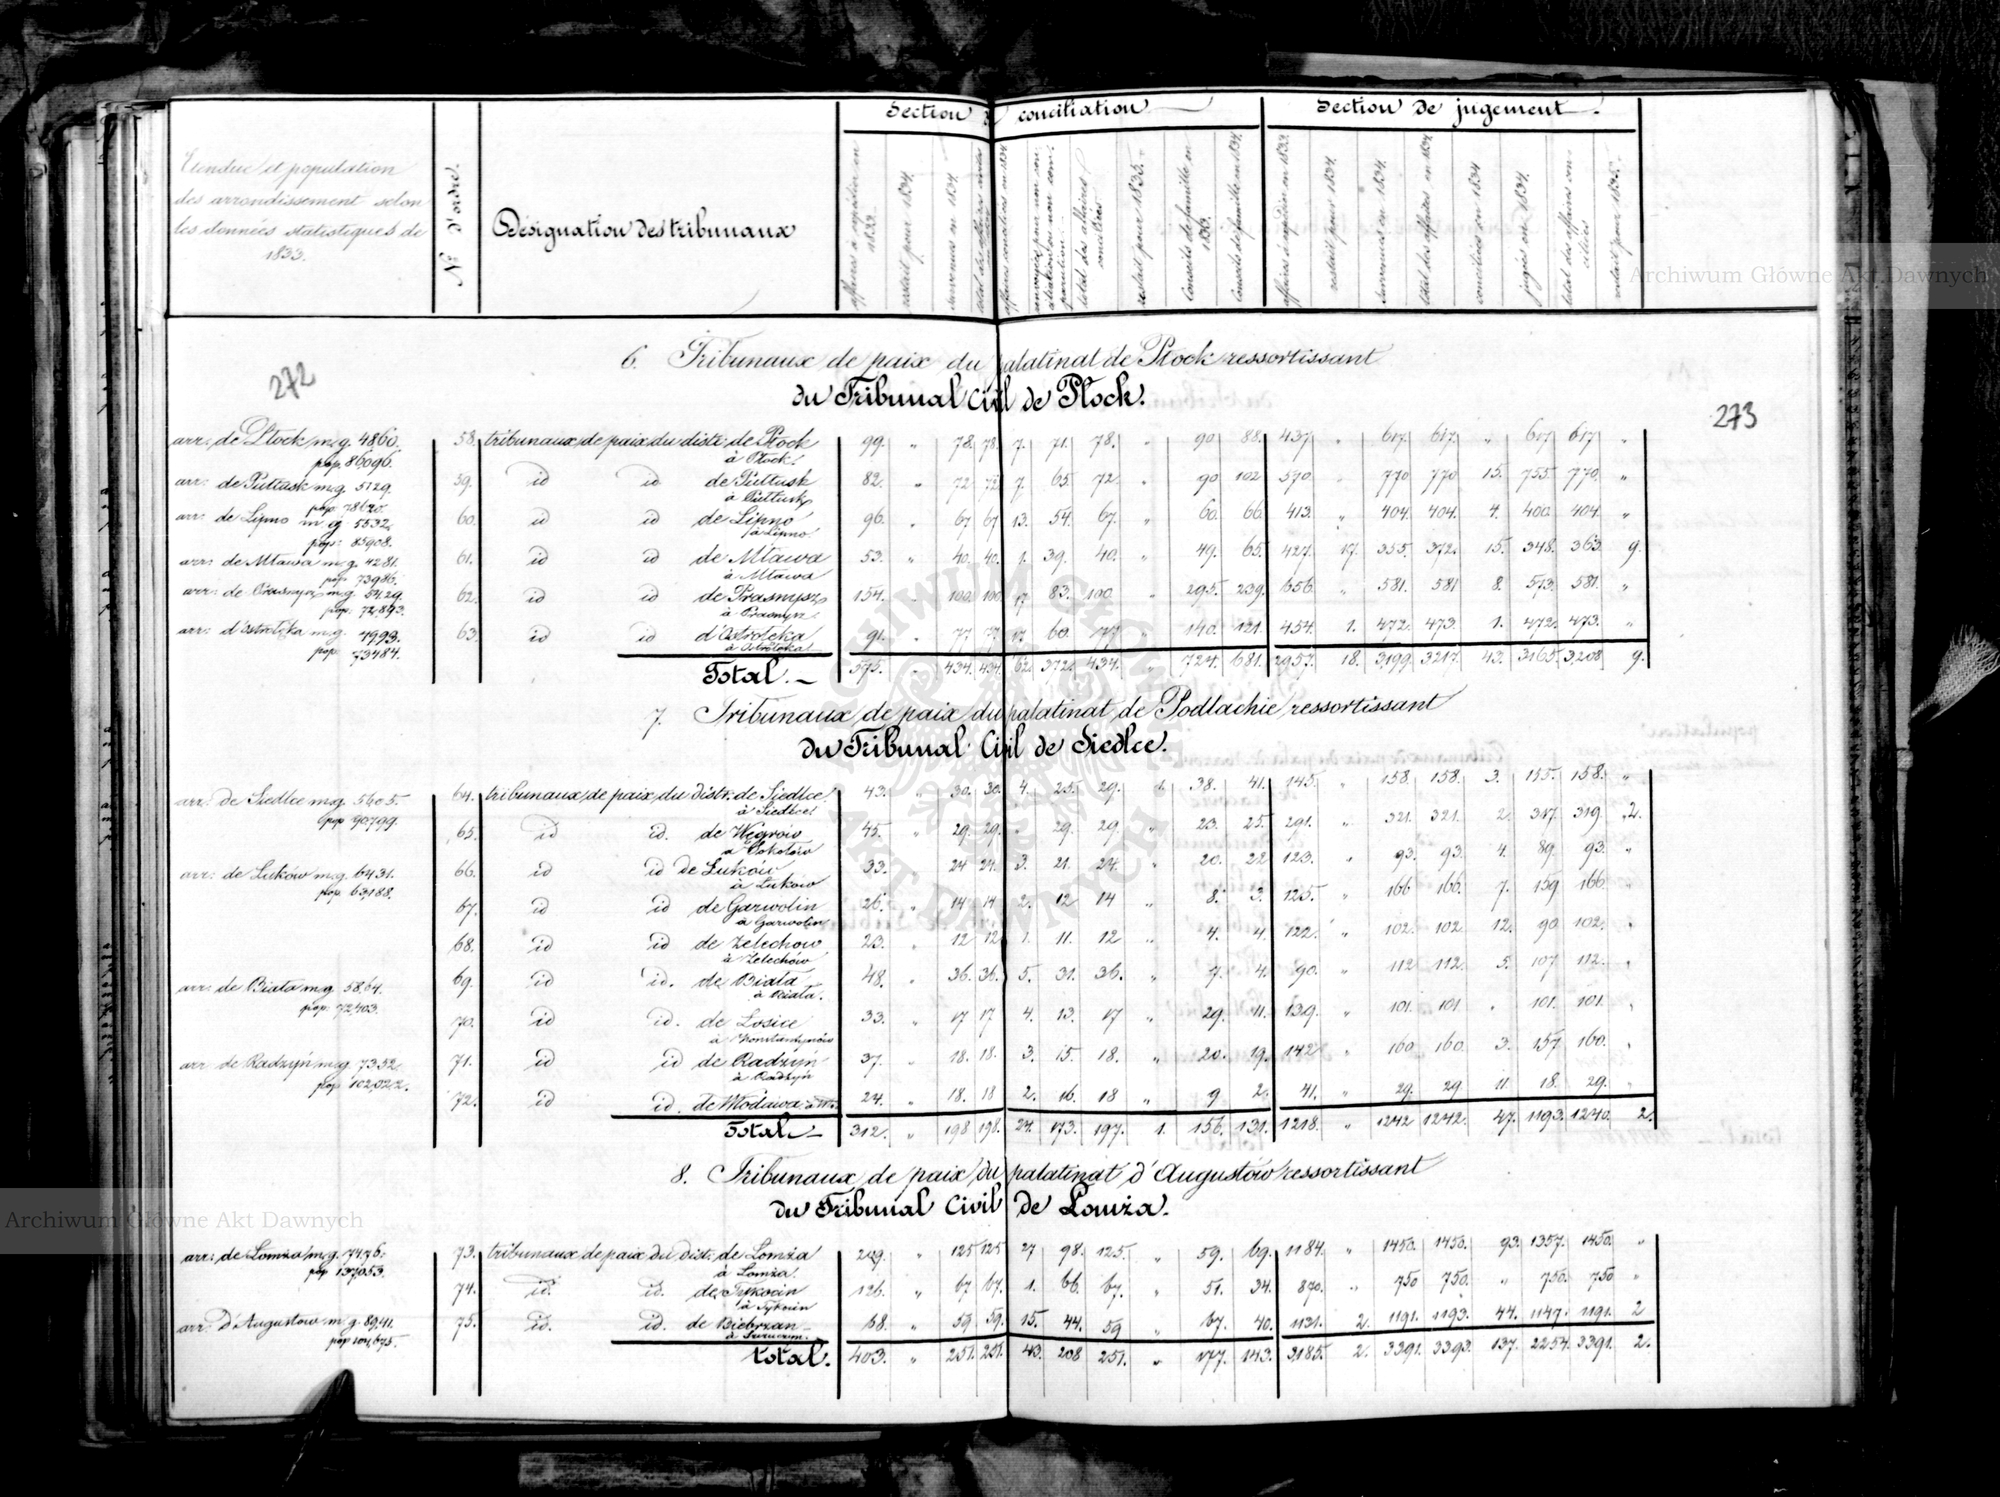 Section de conciliation
Section de jugement.
Etendue et population
des arrondissement selon
les données statistiques de
1833.
N° d'ordre.
Désignation des tribunaux
affaires à expédier en 1833.
restait pour 1834.
survenues en 1834.
affaires conciliées en 1834
total des affaires conciliées
restait pour 1835.
Conseils de famille en 1833.
Conseils de famille en 1834.
affaires à expédier en 1833.
restait pour 1834.
survenues en 1834.
total des affaires en 1834
conciliées en 1834
jugées en 1834.
total des affaires conciliées
restait pour 1835.
272
273
6. Tribunaux de paix du palatinat de Płock ressortissant
du Tribunal Civil de Płock.
arr: de Płock m.g. 4860. 58. tribunaux de paix du distr: de Płock 99. " 78. 78. 7. 71. 78. " 90 88. 437. " 617. 617. " 617 617 "
pop. 86096. à Płock.
arr: de Pułtusk m.g. 5129. 59. id id de Pułtusk 82. " 72 72 7. 65. 72. " 90 102 570. " 770 770 15. 755. 770. "
pop. 78620. à Pułtusk
arr: de Lipno m g 5532. 60. id id de Lipno 96. " 67 67 13. 54. 67. " 60. 66. 413. " 404. 404. 4. 400. 404. "
pop: 85908. à Lipno
arr: de Mława m.g. 4281. 61. id id de Mława 53. " 40. 40. 1. 39. 40. " 49. 65. 427. 17. 355. 372. 15. 348. 363. 9.
pop. 73986. à Mława
arr: de Prasnysz m.g. 5429. 62. id id de Prasnysz 154. " 100. 100 17 83. 100. " 295. 239. 656. " 581. 581 8. 573. 581. "
pop. 72,893. à Prasnysz.
arr: d'Ostrołęka m.g. 7993. 63. id id d'Ostrołęka 91. " 77 77. 17 60. 77 " 140. 121. 454. 1. 472. 473. 1. 472. 473. "
pop. 73484. à Ostrołęka
Total. 575. " 434. 434. 62. 372. 434. " 724. 681. 2957. 18. 3199. 3217. 43. 3165. 3,208 9.
7. Tribunaux de paix du palatinat de Podlachie ressortissant
du Tribunal Civil de Siedlce.
arr: de Siedlce m.g. 5605. 64. tribunaux de paix du distr: de Siedlce. 43. " 30. 30. 4. 25. 29. 1. 38. 41. 145. " 158. 158. 3. 155. 158. "
pop 90,799. à Siedlce.
65. id id. de Węgrow 45. " 29. 29. " 29. 29. " 23. 25. 291. " 321. 321. 2. 317. 319. 2.
à Sokołów
arr: de Łuków m.g. 6431. 66. id id de Łuków 33. " 24 24. 3. 21. 24. " 20. 22 123. " 93. 93. 4. 89. 93. "
pop. 63,188. à Łuków
67. id id de Garwolin 26. " 14 14 2. 12 14 " 8. 3. 125. " 166 166. 7. 159 166. "
à Garwolin
68. id id de Zelechow 23. " 12 12 1. 11. 12 " 4. 4. 122. " 102. 102 12. 90 102. "
à Zelechów
arr: de Biała m.g 5864. 69. id id. de Biała 48. " 36. 36. 5. 31. 36. " 7. 4. 90. " 112 112. 5. 107 112. "
pop: 72403. à Biała.
70. id id. de Łosice 33. " 17 17 4. 13. 17 " 29. 11. 139. " 101. 101 " 101. 101. "
à Konstantynów
arr de Radzyń m.g 7352. 71. id id de Radzyń 37. " 18. 18. 3. 15. 18. " 20. 19. 142 " 160 160. 3. 157 160. "
pop. 102,922. à Radzyń
72. id id. de Włodawa à Wł. 24. " 18. 18 2. 16. 18 " 9 2. 41. " 29. 29 11. 18. 29. "
Total. 312. " 198 198. 24. 173. 197. 1. 156. 131. 1218. " 1242 1242. 47. 1193. 1240. 2.
8. Tribunaux de paix du palatinat d'Augustów ressortissant
du Tribunal Civil de Łomża.
arr: de Łomża m.g. 7476. 73. tribunaux de paix du distr: de Łomża 209. " 125 125 27 98. 125. " 59. 69. 1184. " 1450. 1450. 93. 1357. 1450. "
pop 137,053. à Łomża.
74. id. id. de Tykocin 126. " 67 67. 1. 66. 67. " 51. 34. 870. " 750 750. " 750. 750 "
à Tykocin
arr: D'Augustow m.g. 8941. 75. id. id. de Biebrzan 68. " 59 59. 15. 44. 59 " 67. 40. 1131. 2. 1191. 1193. 44. 1147. 1191. 2
total. 403. " 251. 251. 43. 208 251. " 177. 143. 3185. 2. 3391. 3393. 137. 2254. 3391. 2.
Archiwum Główne Akt Dawnych
Archiwum Główne Akt Dawnych
ARCHIWUM GŁÓWNE AKT DAWNYCH